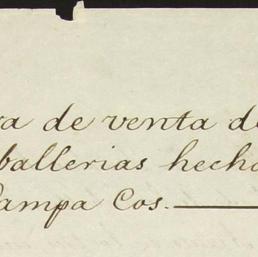 ra de venta de
ballerias hecha
Pampa Cos.